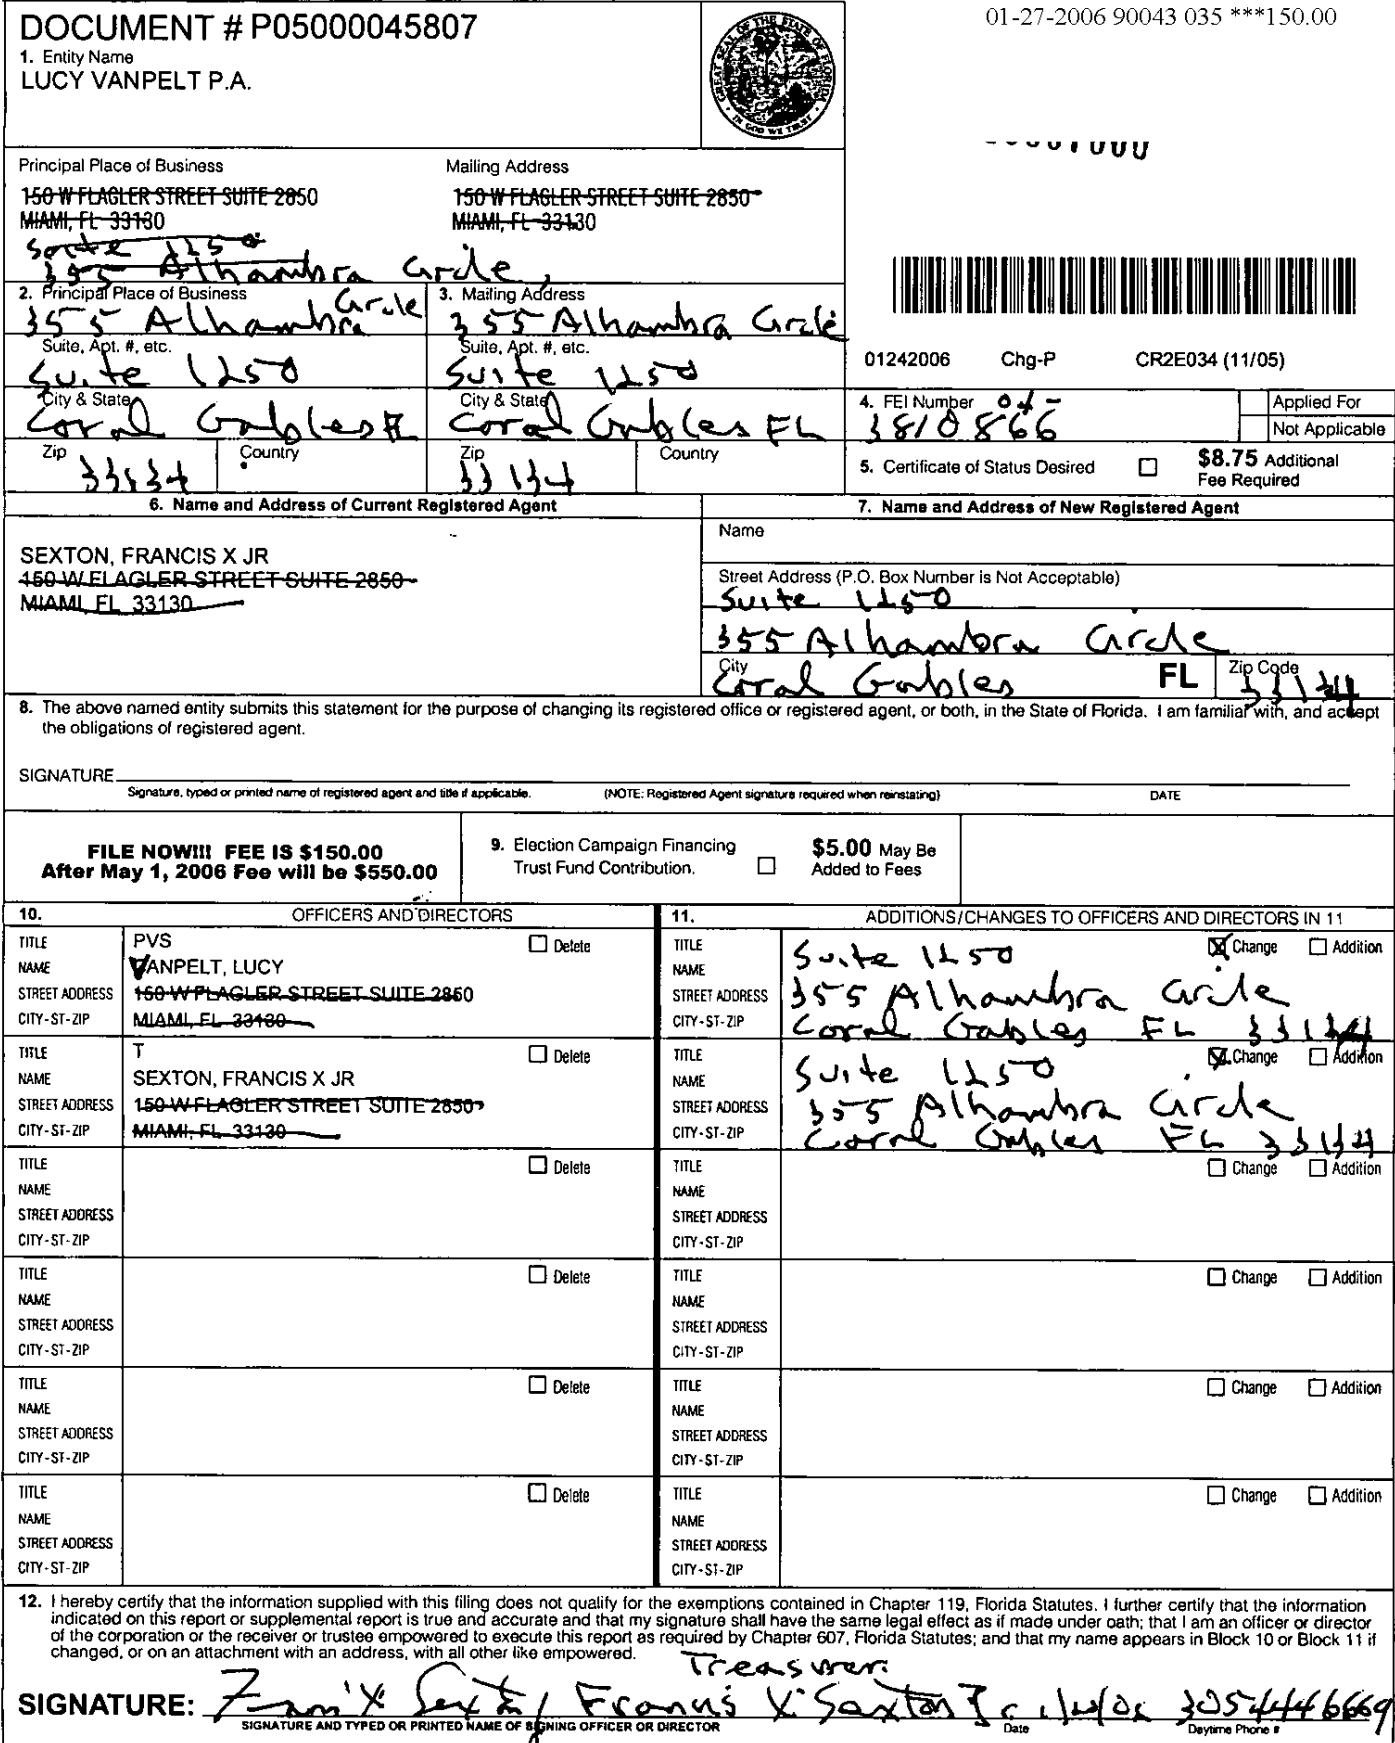 DOCUMENT # P05000045807
1. Entity Name
LUCY VANPELT P.A.
GREAT SEAL OF THE STATE OF FLORIDA
IN GOD WE TRUST
01-27-2006 90043 035 ***150.00
Principal Place of Business
150 W FLAGLER STREET SUITE 2850
MIAMI, FL 33130
Suite 1250
355 Alhambra Circle,
Mailing Address
150 W FLAGLER STREET SUITE 2850
MIAMI, FL 33130
2. Principal Place of Business
355 Alhambra Circle
Suite, Apt. #, etc.
Suite 1250
City & State
Coral Gables FL
Zip
33134
Country
3. Mailing Address
355 Alhambra Circle
Suite, Apt. #, etc.
Suite 1250
City & State
Coral Gables FL
Zip
33134
Country
01242006 Chg-P CR2E034 (11/05)
4. FEI Number
3810866
Applied For
Not Applicable
5. Certificate of Status Desired
$8.75 Additional
Fee Required
6. Name and Address of Current Registered Agent
SEXTON, FRANCIS X JR
150 W FLAGLER STREET SUITE 2850
MIAMI, FL 33130
7. Name and Address of New Registered Agent
Name
Street Address (P.O. Box Number is Not Acceptable)
Suite 1250
355 Alhambra Circle
City
Coral Gables FL
Zip Code
33134
8. The above named entity submits this statement for the purpose of changing its registered office or registered agent, or both, in the State of Florida. I am familiar with, and accept
the obligations of registered agent.
SIGNATURE
Signature, typed or printed name of registered agent and title if applicable. (NOTE: Registered Agent signature required when reinstating) DATE
FILE NOW!!! FEE IS $150.00
After May 1, 2006 Fee will be $550.00
9. Election Campaign Financing
Trust Fund Contribution.
$5.00 May Be
Added to Fees
10. OFFICERS AND DIRECTORS
TITLE PVS Delete
NAME VANPELT, LUCY
STREET ADDRESS 150 W FLAGLER STREET SUITE 2850
CITY-ST-ZIP MIAMI, FL 33130
TITLE T Delete
NAME SEXTON, FRANCIS X JR
STREET ADDRESS 150 W FLAGLER STREET SUITE 2850
CITY-ST-ZIP MIAMI, FL 33130
TITLE Delete
NAME
STREET ADDRESS
CITY-ST-ZIP
TITLE Delete
NAME
STREET ADDRESS
CITY-ST-ZIP
TITLE Delete
NAME
STREET ADDRESS
CITY-ST-ZIP
TITLE Delete
NAME
STREET ADDRESS
CITY-ST-ZIP
11. ADDITIONS/CHANGES TO OFFICERS AND DIRECTORS IN 11
TITLE Suite 1250 Change Addition
NAME
STREET ADDRESS 355 Alhambra Circle
CITY-ST-ZIP Coral Gables FL 33134
TITLE Suite 1250 Change Addition
NAME
STREET ADDRESS 355 Alhambra Circle
CITY-ST-ZIP Coral Gables FL 33134
TITLE Change Addition
NAME
STREET ADDRESS
CITY-ST-ZIP
TITLE Change Addition
NAME
STREET ADDRESS
CITY-ST-ZIP
TITLE Change Addition
NAME
STREET ADDRESS
CITY-ST-ZIP
TITLE Change Addition
NAME
STREET ADDRESS
CITY-ST-ZIP
12. I hereby certify that the information supplied with this filing does not qualify for the exemptions contained in Chapter 119, Florida Statutes. I further certify that the information
indicated on this report or supplemental report is true and accurate and that my signature shall have the same legal effect as if made under oath; that I am an officer or director
of the corporation or the receiver or trustee empowered to execute this report as required by Chapter 607, Florida Statutes; and that my name appears in Block 10 or Block 11 if
changed, or on an attachment with an address, with all other like empowered.
Treasurer
SIGNATURE: Francis X. Sexton 305 4446669
SIGNATURE AND TYPED OR PRINTED NAME OF SIGNING OFFICER OR DIRECTOR Date Daytime Phone #